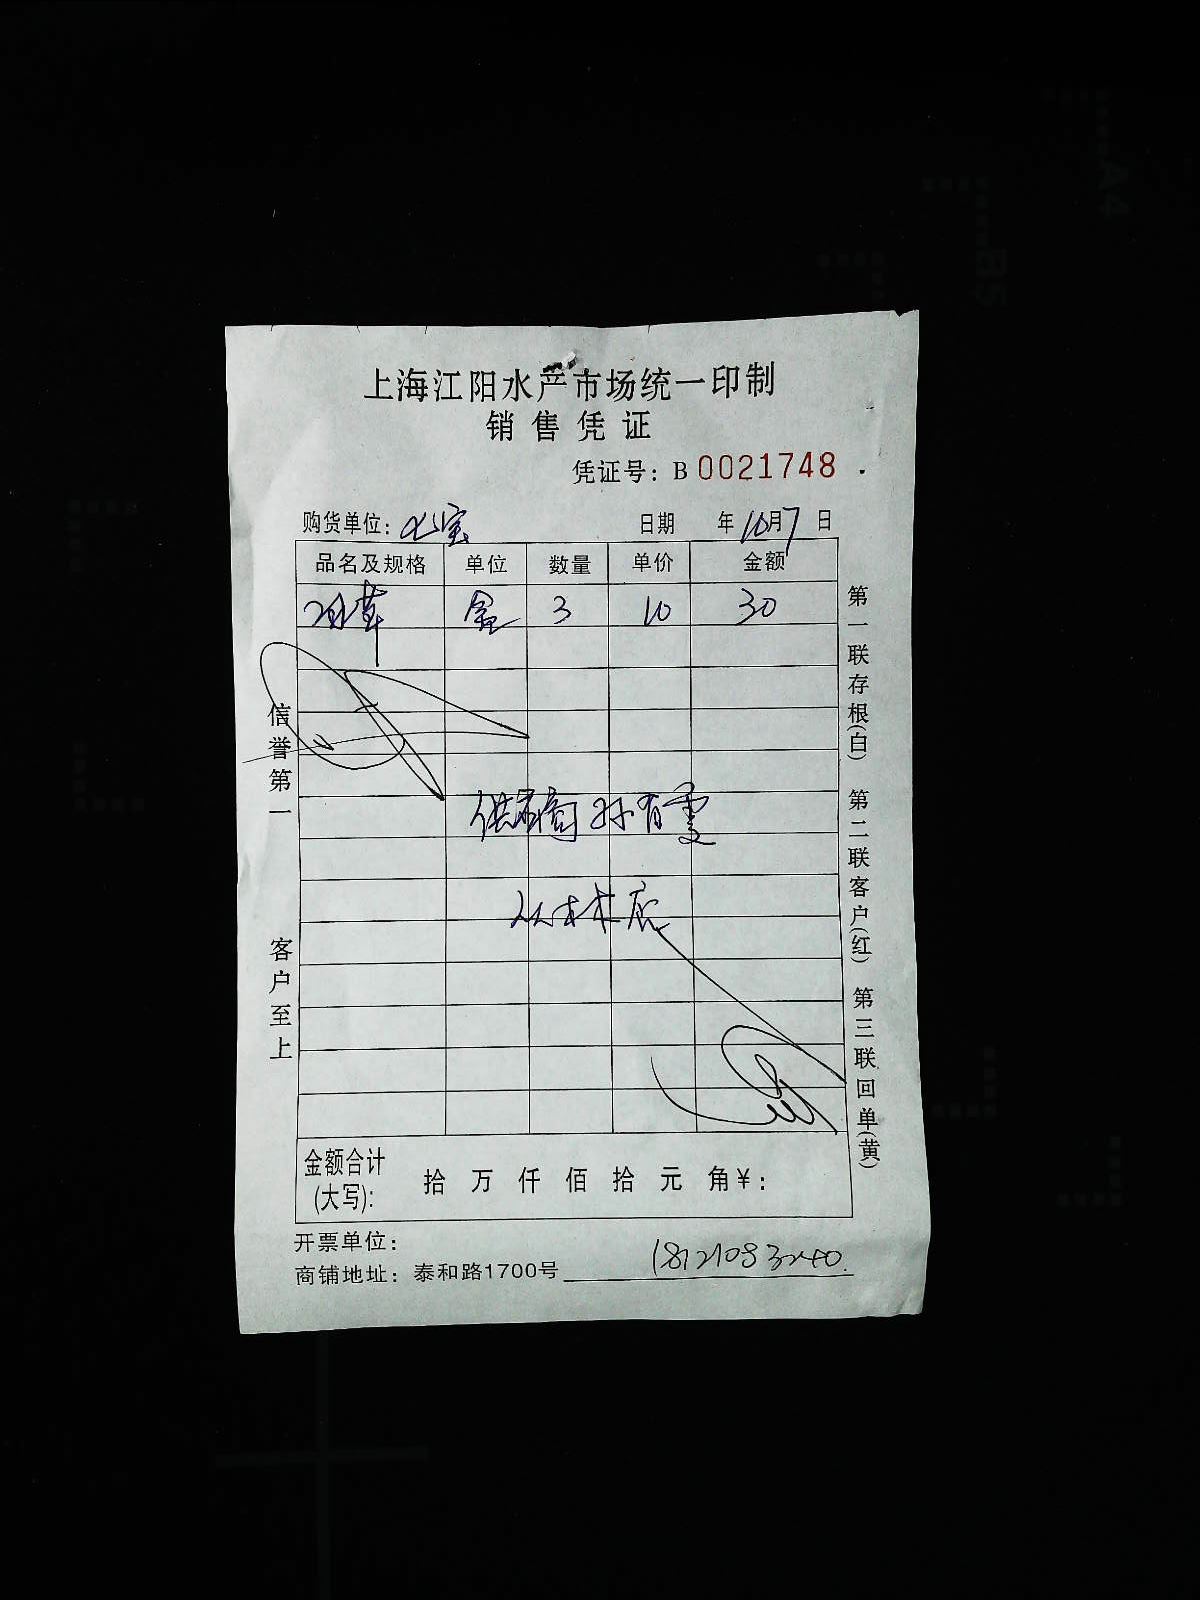 上海江阳水产市场统一印制
销售凭证
凭证号：B 0021748
购货单位：七宝 日期 年10月7日
品名及规格 单位 数量 单价 金额
盒 3 10 30
供应商 孙有雯
金额合计(大写)： 拾 万 仟 佰 拾 元 角￥：
开票单位：
商铺地址：泰和路1700号 18121083240
信誉第一 客户至上
第一联存根(白) 第二联客户(红) 第三联回单(黄)
A4
B5